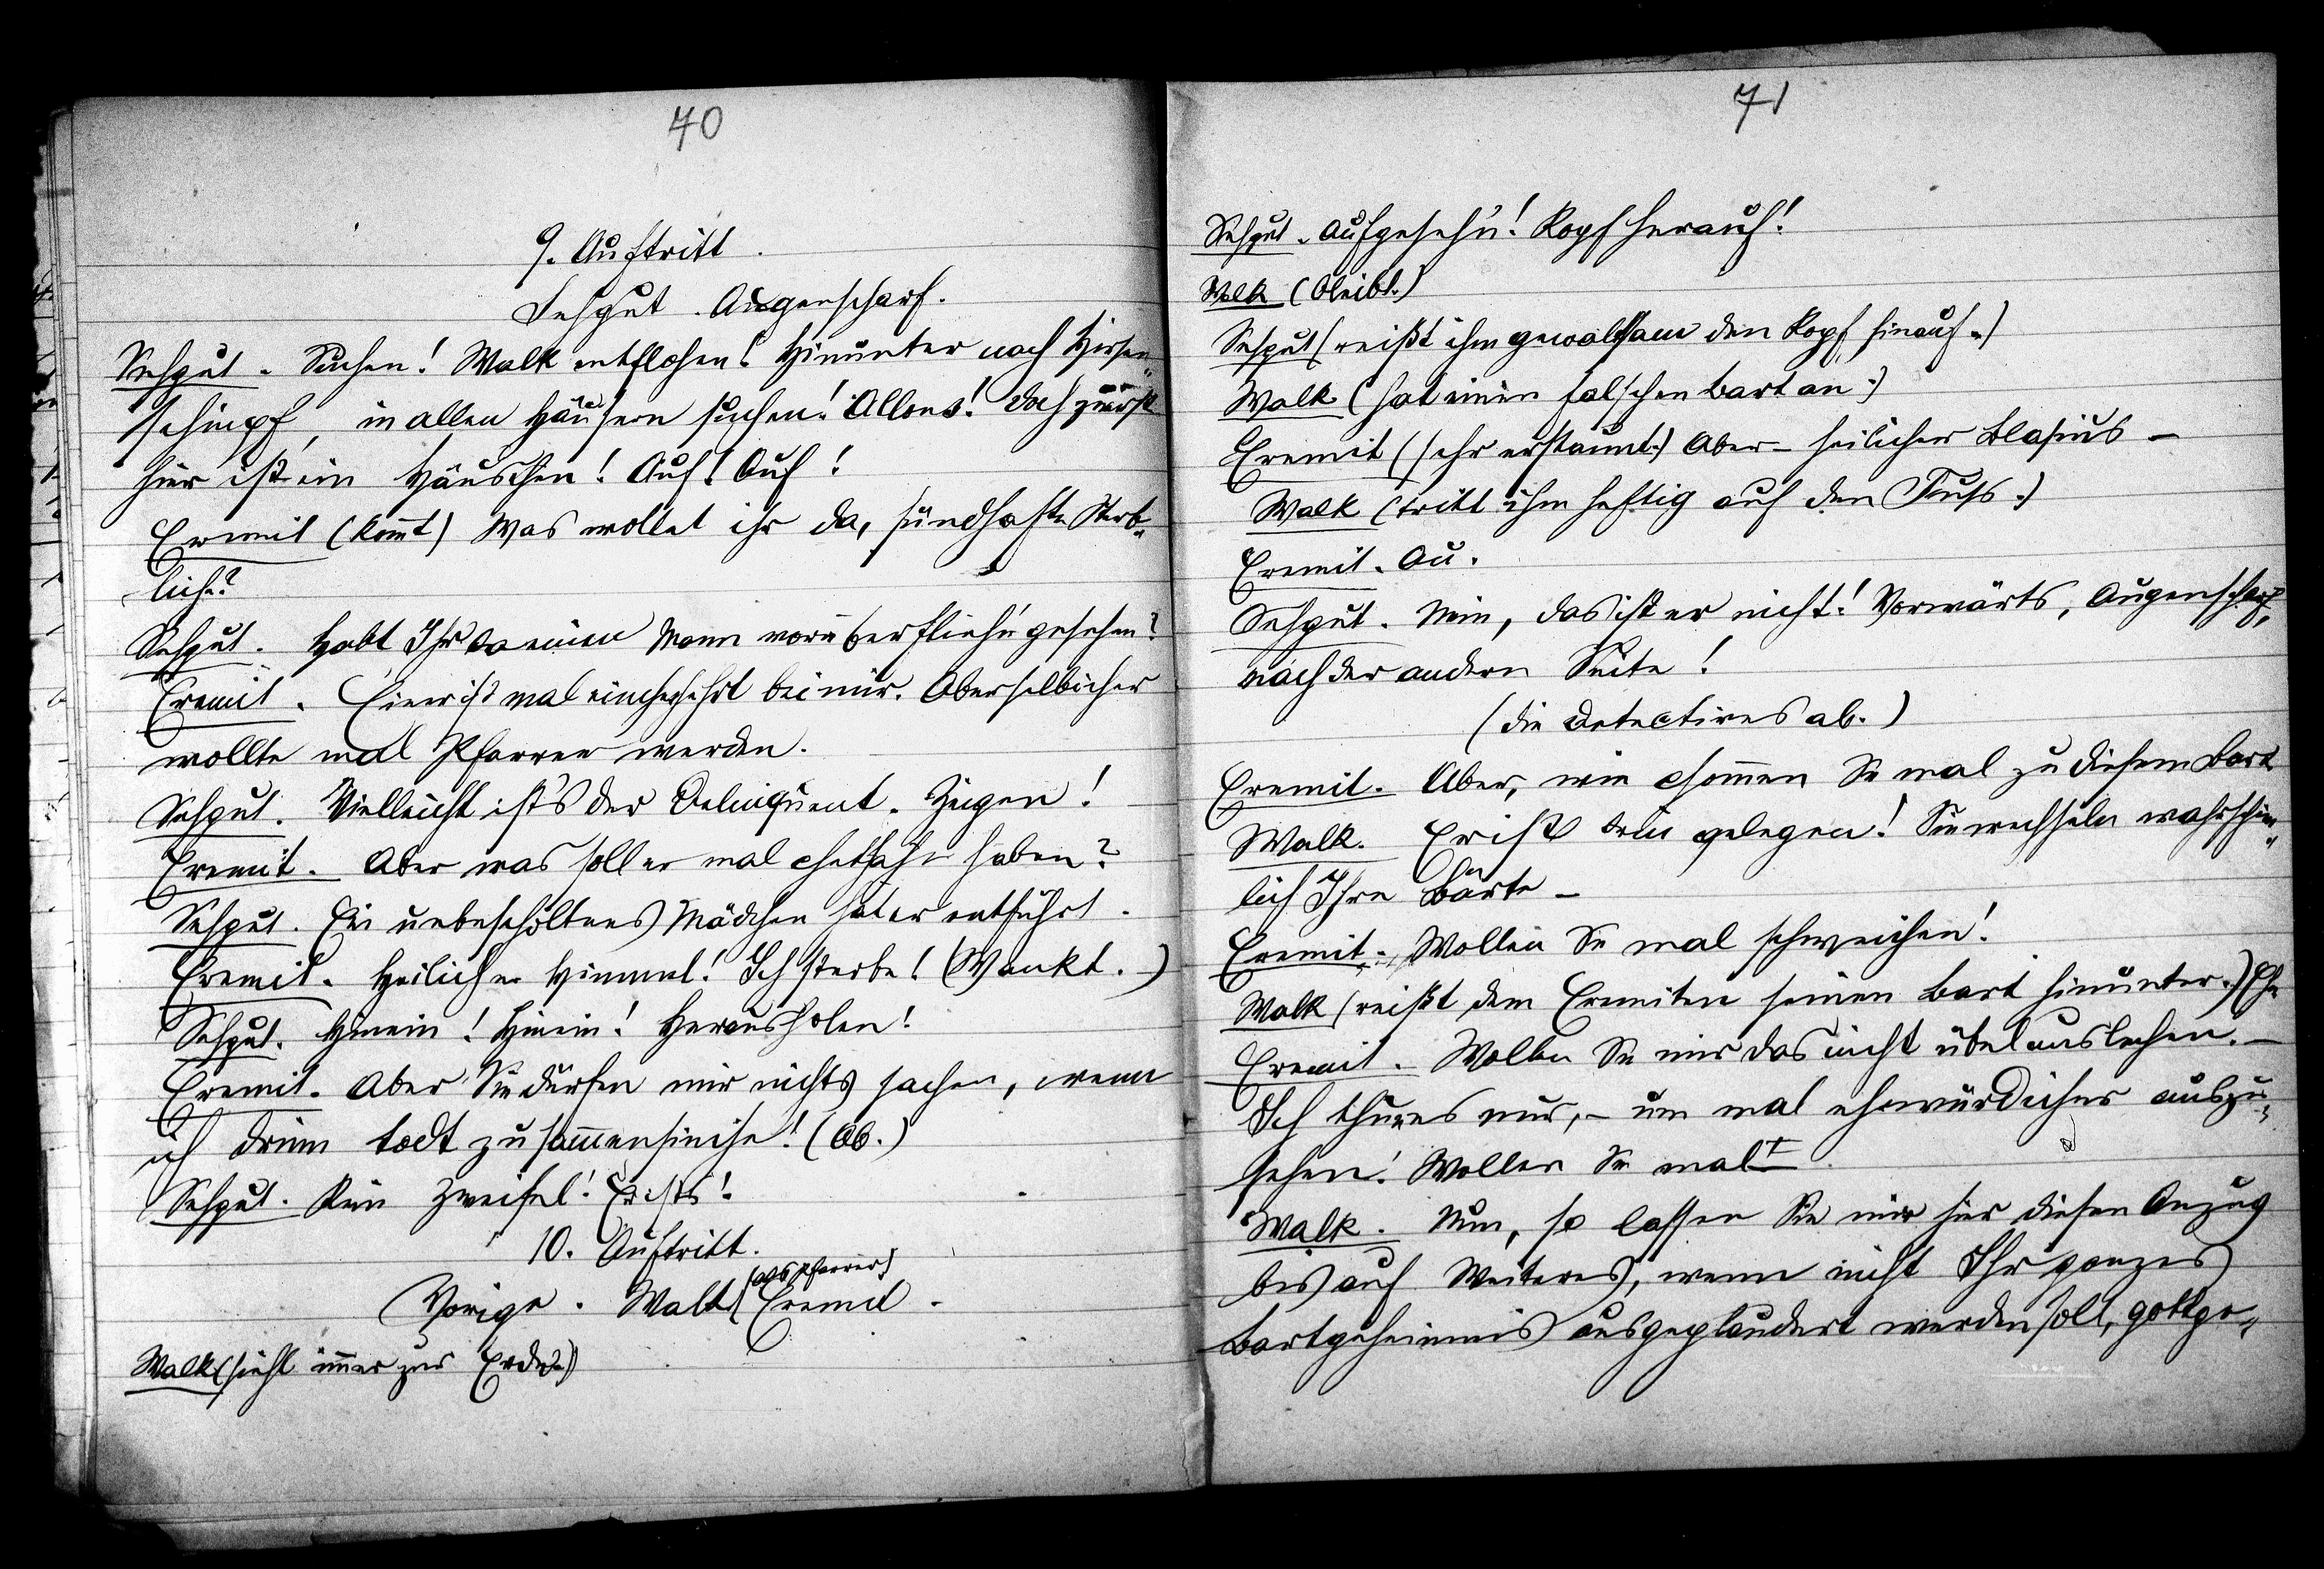 70
9. Auftritt.
Sehgut. Augenscharf.
Sehgut. Suchen! Walk entflohen! Hinunter nach Hirsen„
schimpf, in allen Häusern suchen! Allons! Doch zuerst
hier ist ein Häuschen! Auf! Auf!
Eremit (kommt) Was wollet ihr da, sündhafte Sterb„
liche?
Sehgut. Habt Ihr da einen Mann vorüberflieh'n gesehen?
Eremit. Einer ist mal eingechehrt bei mir. Aber selbicher
wollte mal Pfarrer werden.
Sehgut. Vielleicht ist's der Delinquent. Zeigen!
Eremit. Aber was soll er mal chethahn haben?
Sehgut. Ein unbescholtenes Mädchen hat er entführt.
Eremit. Heilicher Himmel! Ich sterbe! (Wankt.)
Sehgut. Hinein! Hinein! Herausholen!
Eremit. Aber Sie dürfen mir nichts sachen, wenn
ich drinn todt zusammensinke! (Ab.)
Sehgut. Kein Zweifel! Er ists!
10. Auftritt.
Vorige. Walk (als Pfarrer) Eremit.
Walk (sieht immer zur Erde.)
71
Sehgut. Aufgeseh'n! Kopf herauf!
Walk (bleibt.)
Sehgut (reißt ihm gewaltsam den Kopf hinauf.)
Walk (hat einen falschen Bart an.)
Eremit (sehr erstaunt.) Aber – heilicher Blasius –
Walk (tritt ihm heftig auf den Fuss.)
Eremit. Au.
Sehgut. Nein, das ist er nicht! Vorwärts, Augenscharf,
nach der andern Seite!
(die Detectives ab.)
Eremit. Aber, wie chommen Sie mal zu diesem Bart
Walk. Er ist drin gelegen! Sie wechseln wahrschein„
lich Ihre Bärte –
Eremit. Wollen Sie mal schweichen!
Walk (reißt dem Eremiten seinen Bart hinunter.) Eh
Eremit. Wollen Sie mir das nicht übel auslechen. –
Ich thu es nur, – um mal ehrwürdicher auszu„
sehen! Wollen Sie mal
Walk. Nun, so lassen Sie mir hier diesen Anzug
bis auf Weiteres, wenn nicht Ihr ganzes
Bartgeheimnis ausgeplaudert werden soll, gottge„